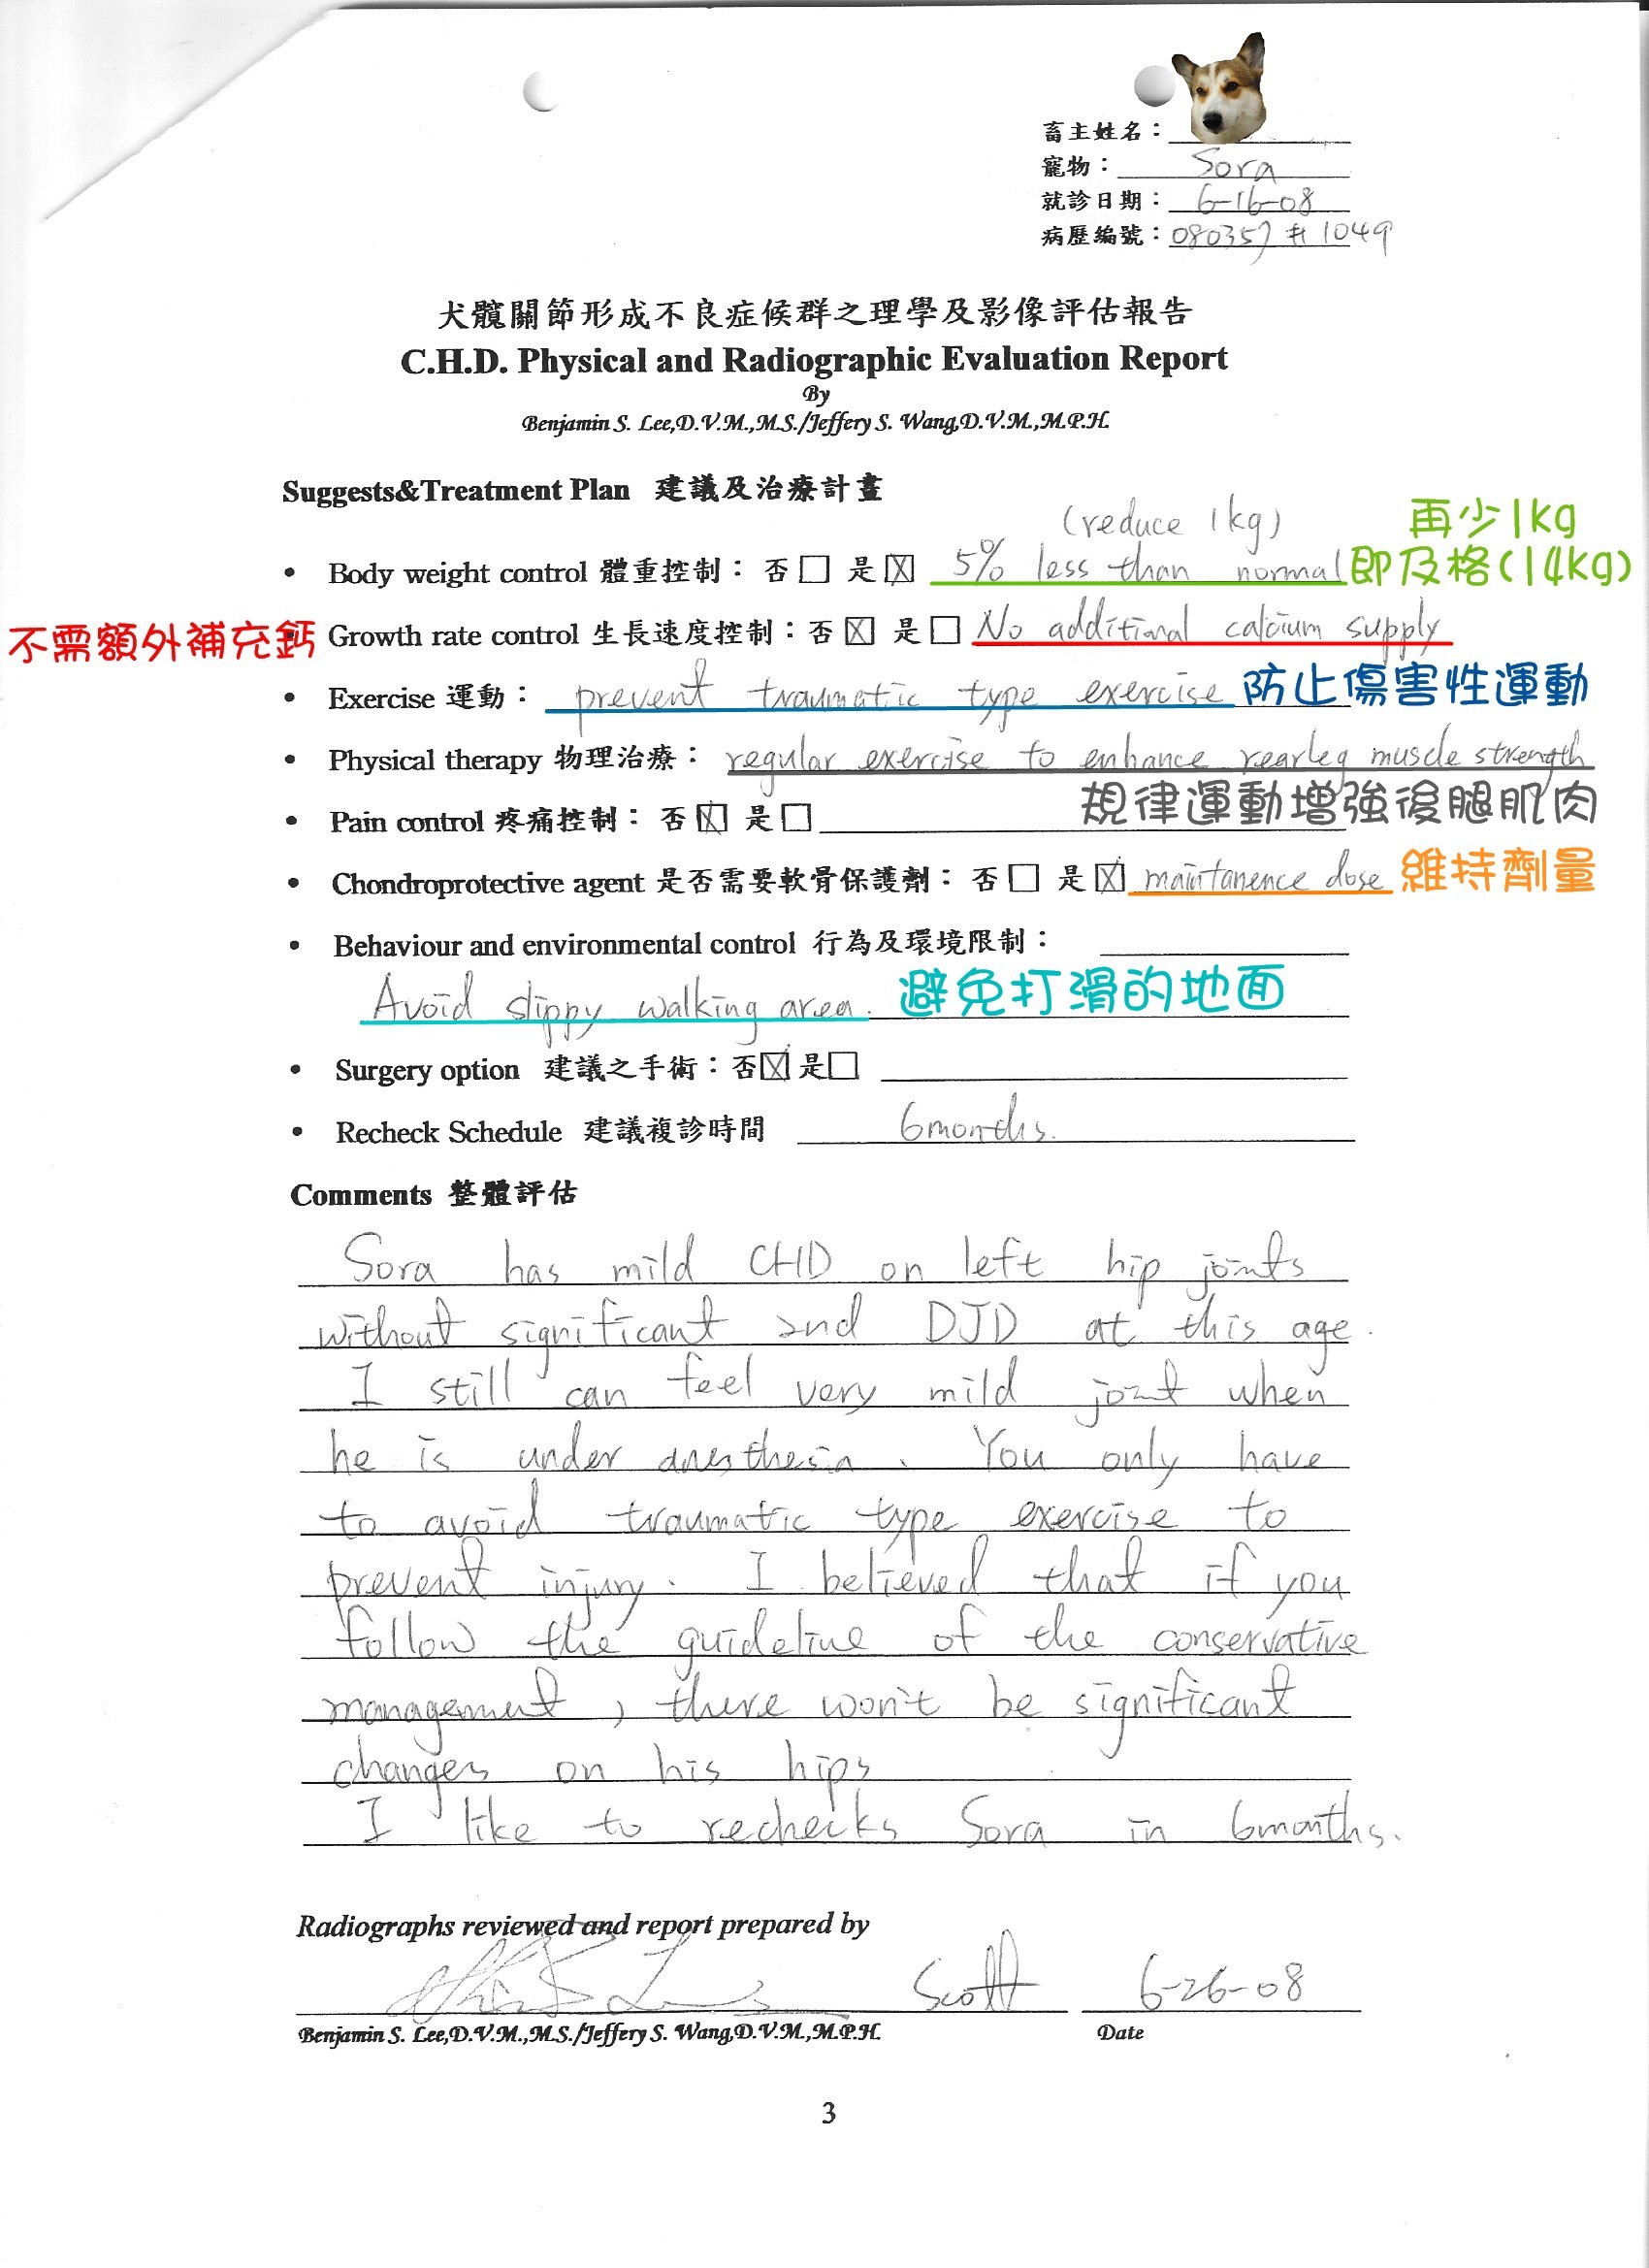 畜主姓名：
寵物： Sora
就診日期： 6-16-08
病歷編號： 080357 # 1049
犬髖關節形成不良症候群之理學及影像評估報告
C.H.D. Physical and Radiographic Evaluation Report
By
Benjamin S. Lee,D.V.M.,M.S./Jeffery S. Wang,D.V.M.,M.P.H.
Suggests&Treatment Plan 建議及治療計畫
(reduce 1kg) 再少1kg
• Body weight control 體重控制：否□ 是☒ 5% less than normal 即及格(14kg)
不需額外補充鈣 • Growth rate control 生長速度控制：否☒ 是□ No additional calcium supply
• Exercise 運動： prevent traumatic type exercise 防止傷害性運動
• Physical therapy 物理治療： regular exercise to enhance rearleg muscle strength
規律運動增強後腿肌肉
• Pain control 疼痛控制：否☒ 是□
• Chondroprotective agent 是否需要軟骨保護劑：否□ 是☒ maintanence dose 維持劑量
• Behaviour and environmental control 行為及環境限制：
Avoid slippy walking area. 避免打滑的地面
• Surgery option 建議之手術：否☒是□
• Recheck Schedule 建議複診時間 6months.
Comments 整體評估
Sora has mild CHD on left hip joints
without significant 2nd DJD at this age.
I still can feel very mild joint when
he is under anesthesia. You only have
to avoid traumatic type exercise to
prevent injury. I believed that if you
follow the guideline of the conservative
management, there won't be significant
changes on his hips
I like to rechecks Sora in 6months.
Radiographs reviewed and report prepared by
Scott 6-26-08
Benjamin S. Lee,D.V.M.,M.S./Jeffery S. Wang,D.V.M.,M.P.H. Date
3